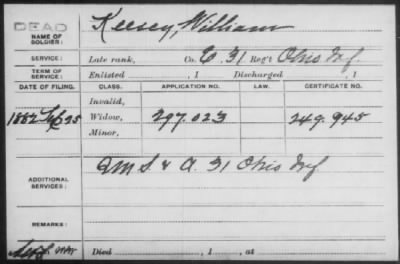 DEAD
NAME OF SOLDIER: Keesey, William
SERVICE: Late rank, Co. C. 31 Reg't Ohio Inf.
TERM OF SERVICE: Enlisted , 1 Discharged , 1
DATE OF FILING. CLASS. APPLICATION NO. LAW. CERTIFICATE NO.
Invalid,
1882 25 Widow, 297.023 249.945
Minor,
ADDITIONAL SERVICES: S. & A. 31 Ohio Inf
REMARKS:
Died , 1 , at